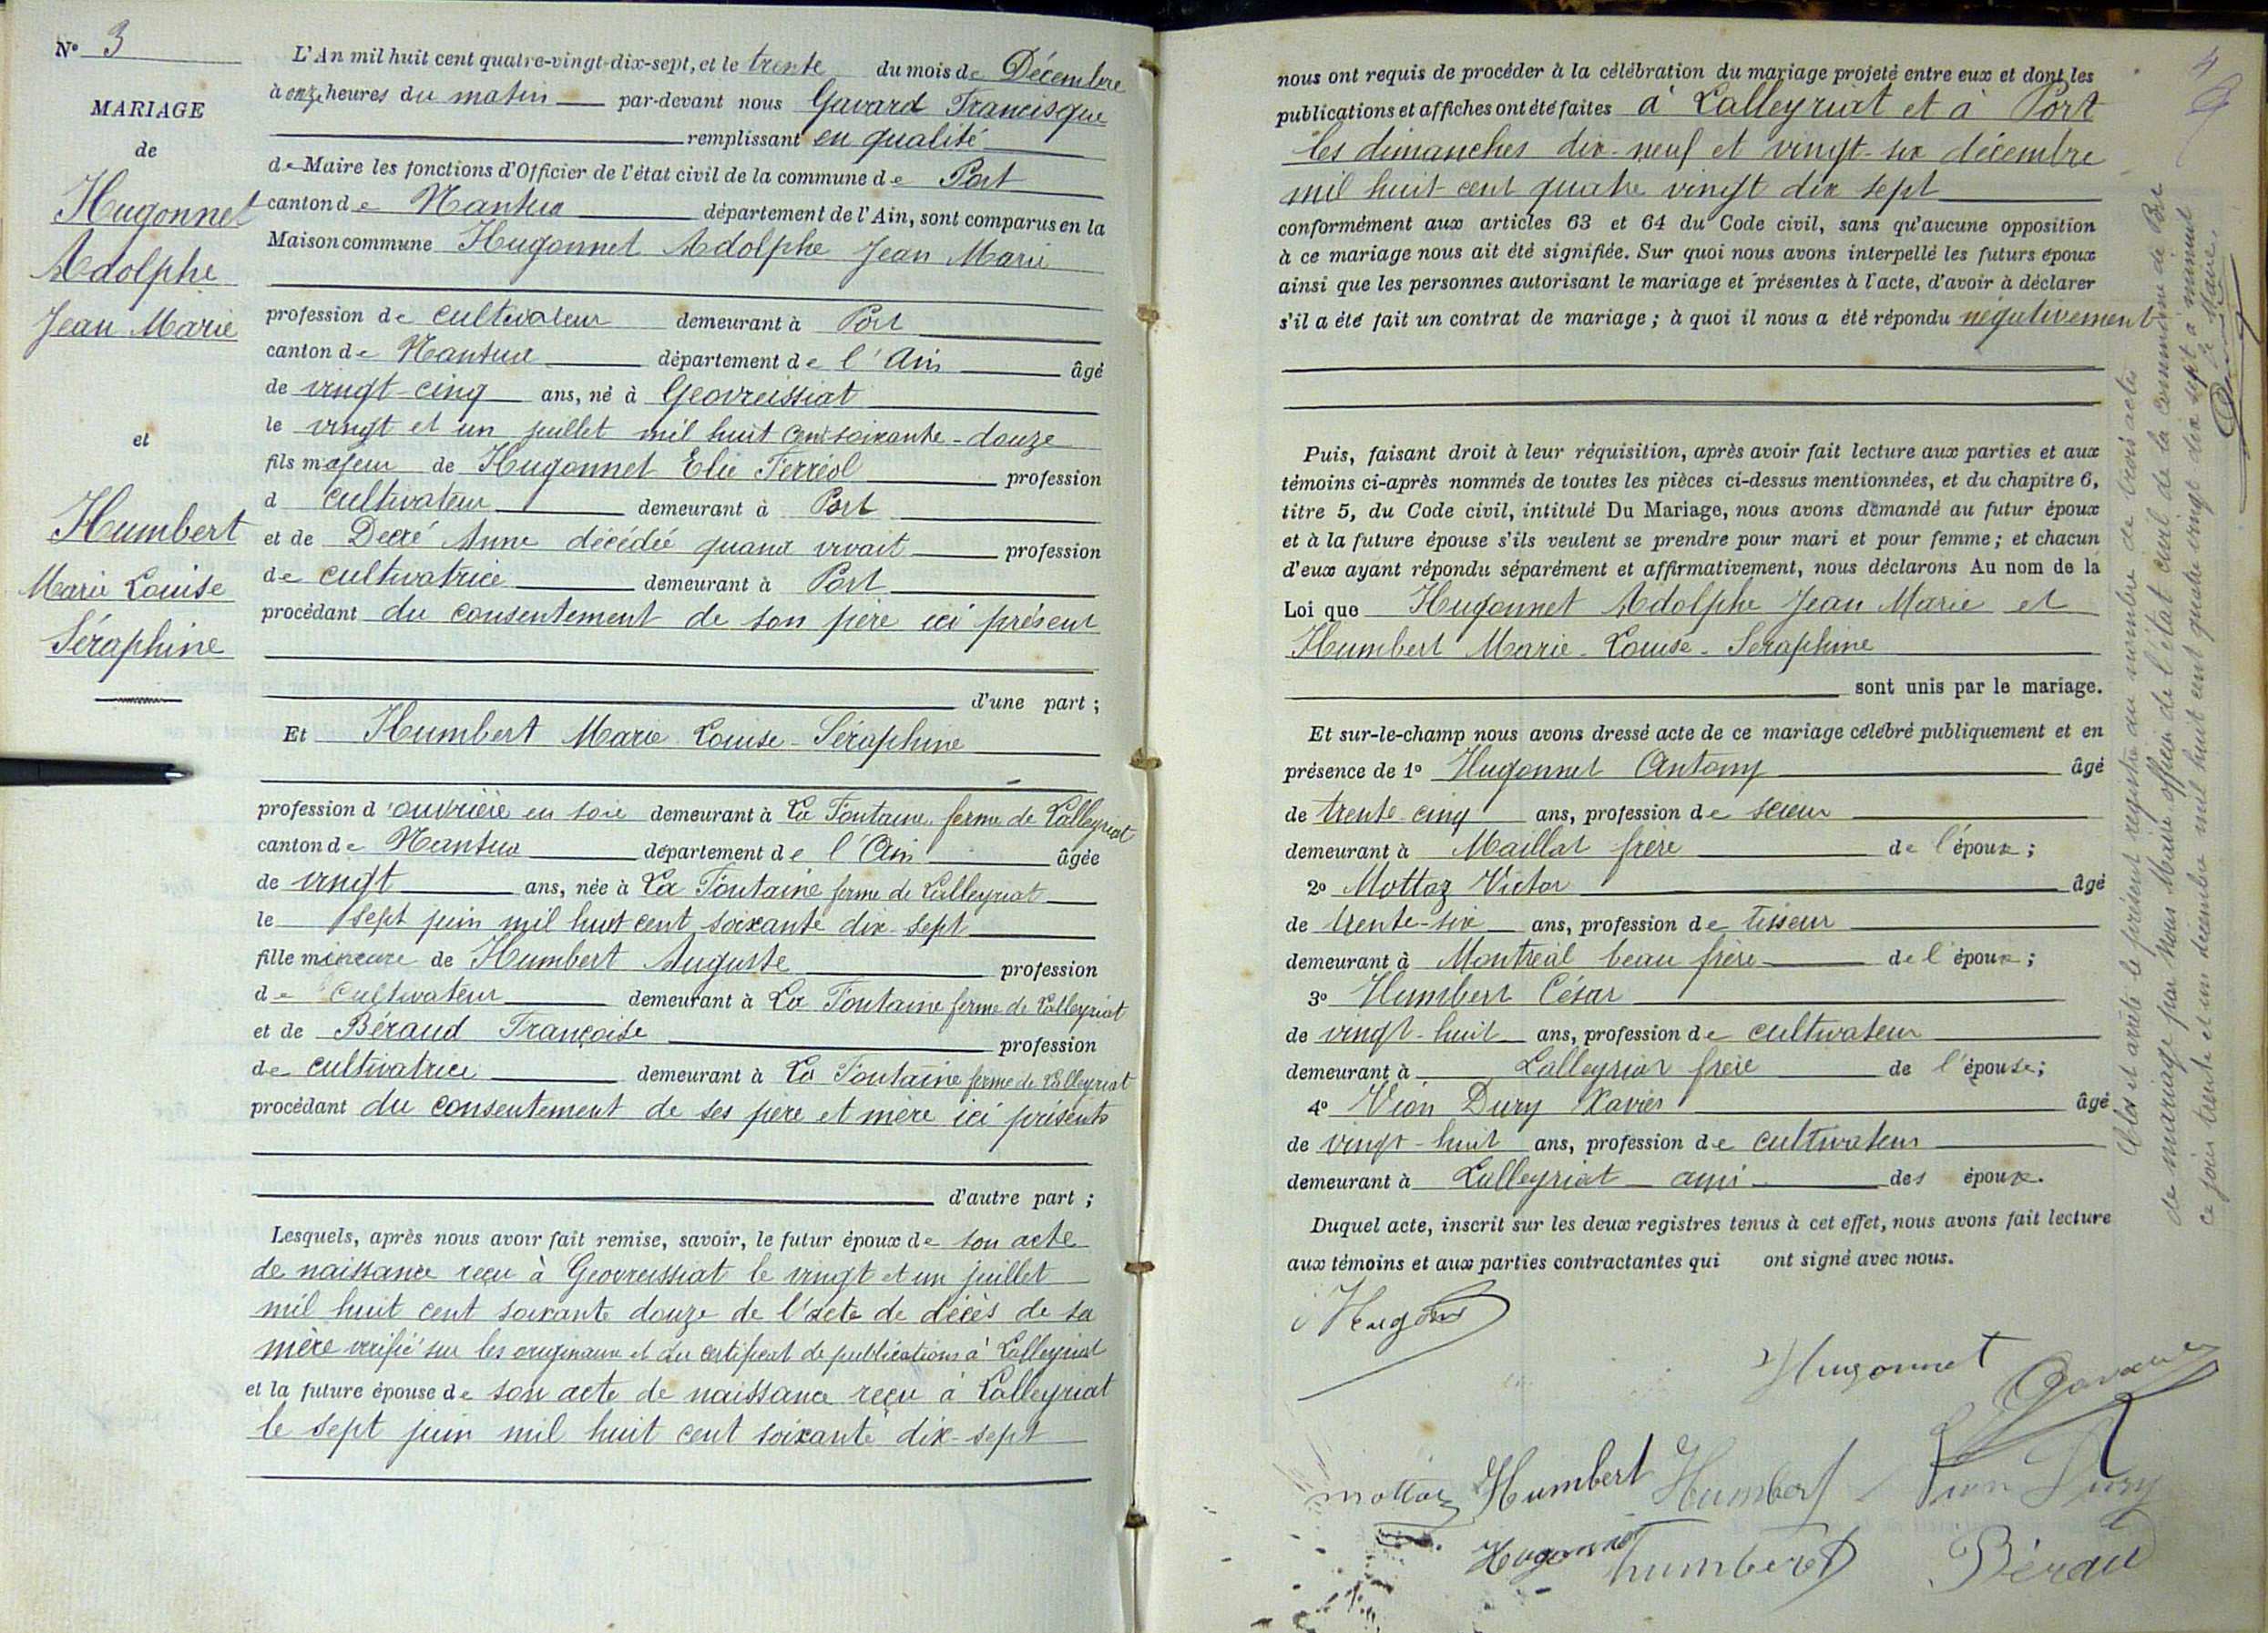 N° 3
MARIAGE
de
Hugonnet
Adolphe
Jean Marie
et
Humbert
Marie Louise
Séraphine
L'An mil huit cent quatre-vingt-dix-sept, et le trente du mois de Décembre
à onze heures du matin par-devant nous Gavard Francisque
remplissant en qualité
de Maire les fonctions d'Officier de l'état civil de la commune de Port
canton de Nantua département de l'Ain, sont comparus en la
Maison commune Hugonnet Adolphe Jean Marie
profession de cultivateur demeurant à Port
canton de Nantua département de l'Ain âgé
de vingt-cinq ans, né à Geovreissiat
le vingt et un juillet mil huit cent soixante-douze
fils majeur de Hugonnet Elie Ferréol profession
d cultivateur demeurant à Port
et de Decré Anne décédée quand vivait profession
de cultivatrice demeurant à Port
procédant du consentement de son père ici présent
d'une part ;
Et Humbert Marie Louise-Séraphine
profession d'ouvrière en soie demeurant à La Fontaine ferme de Lalleyriat
canton de Nantua département de l'Ain âgée
de vingt ans, née à La Fontaine ferme de Lalleyriat
le sept juin mil huit cent soixante dix-sept
fille mineure de Humbert Auguste profession
de cultivateur demeurant à La Fontaine ferme de Lalleyriat
et de Béraud Françoise profession
de cultivatrice demeurant à La Fontaine ferme de Lalleyriat
procédant du consentement de ses père et mère ici présents
d'autre part ;
Lesquels, après nous avoir fait remise, savoir, le futur époux de son acte
de naissance reçu à Geovreissiat le vingt et un juillet
mil huit cent soixante douze de l'acte de décès de sa
mère vérifié sur les originaux et du certificat de publications à Lalleyriat
et la future épouse de son acte de naissance reçu à Lalleyriat
le sept juin mil huit cent soixante dix-sept
4
nous ont requis de procéder à la célébration du mariage projeté entre eux et dont les
publications et affiches ont été faites à Lalleyriat et à Port
les dimanches dix-neuf et vingt-six décembre
mil huit cent quatre vingt dix sept
conformément aux articles 63 et 64 du Code civil, sans qu'aucune opposition
à ce mariage nous ait été signifiée. Sur quoi nous avons interpellé les futurs époux
ainsi que les personnes autorisant le mariage et présentes à l'acte, d'avoir à déclarer
s'il a été fait un contrat de mariage ; à quoi il nous a été répondu négativement
Puis, faisant droit à leur réquisition, après avoir fait lecture aux parties et aux
témoins ci-après nommés de toutes les pièces ci-dessus mentionnées, et du chapitre 6,
titre 5, du Code civil, intitulé Du Mariage, nous avons demandé au futur époux
et à la future épouse s'ils veulent se prendre pour mari et pour femme ; et chacun
d'eux ayant répondu séparément et affirmativement, nous déclarons Au nom de la
Loi que Hugonnet Adolphe Jean Marie et
Humbert Marie-Louise-Seraphine
sont unis par le mariage.
Et sur-le-champ nous avons dressé acte de ce mariage célébré publiquement et en
présence de 1° Hugonnet Antony âgé
de trente cinq ans, profession de scieur
demeurant à Maillat frère de l'époux ;
2° Mottaz Victor âgé
de trente-six ans, profession de tisseur
demeurant à Montréal beau frère de l'époux ;
3° Humbert César
de vingt-huit ans, profession de cultivateur
demeurant à Lalleyriat frère de l'épouse ;
4° Vion Dury Xavier âgé
de vingt-huit ans, profession de cultivateur
demeurant à Lalleyriat ami des époux.
Duquel acte, inscrit sur les deux registres tenus à cet effet, nous avons fait lecture
aux témoins et aux parties contractantes qui ont signé avec nous.
Hugonnet
Gavard
mottaz Humbert Humbert Vion Dury
Hugonnet humbert Béraud
Clos et arrêté le présent registre au nombre de trois actes
de mariage par Nous Maire officier de l'état civil de la commune de Port
ce jour trente et un décembre mil huit cent quatre vingt dix sept à minuit
Le Maire.